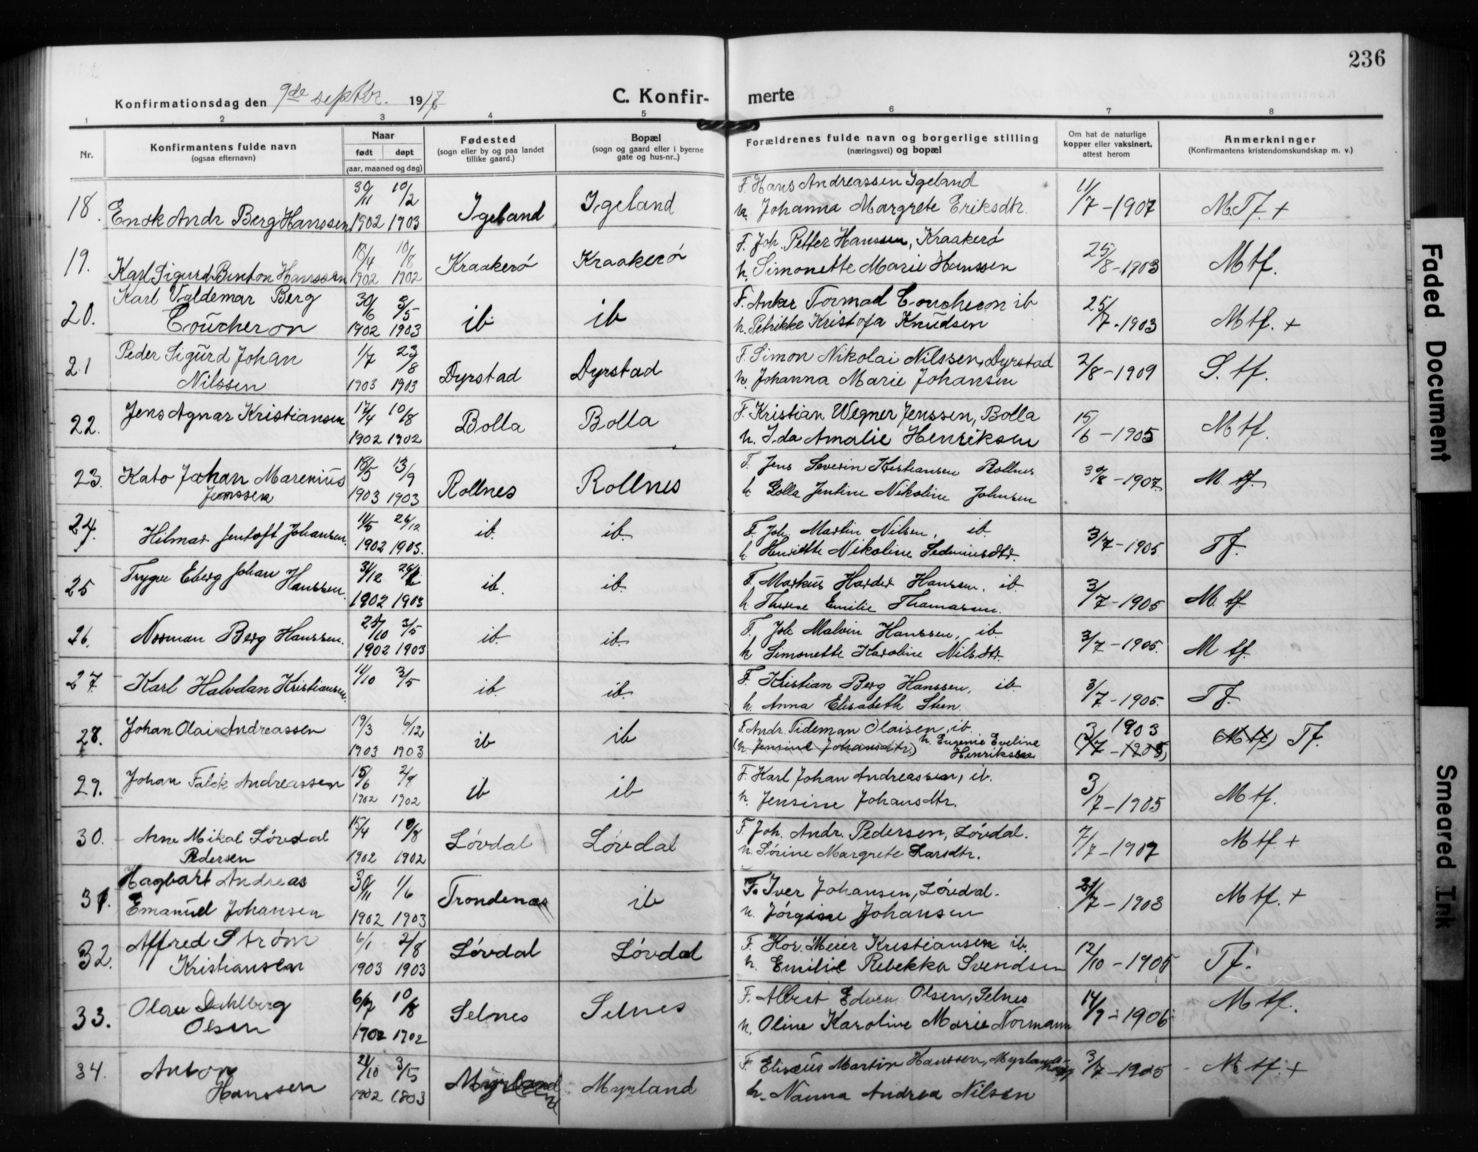 236
Konfirmationsdag den 9de septbr. 1917
C. Konfir- merte
1 2 3 4 5 6 7 8
Nr.
Konfirmantens fulde navn
(ogsaa efternavn)
Naar
født døpt
(aar, maaned og dag)
Fødested
(sogn eller by og paa landet
tillike gaard.)
Bopæl
(sogn og gaard eller i byerne
gate og hus-nr..)
Forældrenes fulde navn og borgerlige stilling
(næringsvei) og bopæl
Om hat de naturlige
kopper eller vaksinert,
attest herom
Anmerkninger
(Konfirmantens kristendomskundskap m. v.)
18. Enok Andr Berg Hanssen 30/11 1902 10/2 1903 Igeland Igeland
F. Hans Andreassen Igeland
M. Johanna Margrete Eriksdtr. 11/7-1907 M Tf. +
19. Karl Sigurd Benton Hanssen 13/4 1902 10/8 1902 Kraakerö Kraakerö
F. Joh. Petter Hanssen, Kraakerö
M. Simonette Marie Hanssen 25/8-1903 Mtf.
20. Karl Valdemar Berg
Coucheron 30/6 1902 3/5 1903 ib ib
F. Anker Tormod Coucheron ib
M. Petrikke Kristofa Knudsen 25/7-1903 Mtf. +
21 Peder Sigurd Johan
Nilssen 1/7 1903 23/8 1903 Dyrstad Dyrstad
F. Simon Nikolai Nilssen, Dyrstad
M. Johanna Marie Johansen 2/8-1909 S. tf.
22. Jens Agnar Kristiansen 17/4 1902 10/8 1902 Bolla Bolla
F. Kristian Wegner Jenssen, Bolla
M. Ida Amalie Henriksen 15/6-1905 Mtf.
23. Kato Johan Marenius
Jenssen 1903 13/9 1903 Rollnes Rollnes
F. Jens Severin Kristiansen Rollnes
M. Jentine Nikoline Johnsen -1907. M tf.
24. Hilmar Jentoft Johansen. 1902 26/12 1903. ib. ib.
F. Joh. Martin Nilsen, ib.
M. Henritte Nikoline 3/7-1905 Tf.
25 Trygve Eberg Johan
Hanssen. 31/12 1902 1903 ib. ib.
F. Markus Harder Hanssen, ib
M. Therese Emilie Thomassen. 3/7-1905 M. tf
26. Norman Berg Hanssen. 25/10 1902 3/5 1903 ib ib.
F. Joh Malvin Hanssen, ib
M. Simonette Karoline Nilsdtr. 3/7-1905. M tf.
27. Karl Halvdan Kristiansen. 11/10 3/5 ib ib.
F. Kristian Berg Hanssen, ib
M. Anna Elisabeth Steen. 3/7-1905. Tf.
28. Johan Olai Andreassen 19/3 1903 6/12 1903 ib ib
F. Andr. Tideman Olaisen, ib
(M. Jensine Johansdtr.) M. Eugenie Eveline
Henriksen 3/7 1903 (-1905) (Mtf.) Tf.
29. Johan Falck Andreassen 15/6 1902 2/9 1902 ib ib
F. Karl Johan Andreassen, ib.
M. Jensine Johansdtr. 3/7-1905 Mtf.
30. Arne Mikal Lövdal
Pedersen 15/4 1902 10/8 1902 Lövdal Lövdal
F. Joh. Andr. Pedersen, Lövdal.
M. Sörine Margrete Larsdtr. 7/7-1907 Mtf +
31. Hagbart Andreas
Emanuel Johansen 30/11 1902 1/6 1903 Trondenes ib
F. Iver Johansen, Lövdal.
M. Jörgine Johansen 21/7-1908 Mtf. +
32. Alfred Ström
Kristiansen 6/1 1903 2/8 1903 Lövdal Lövdal
F. Kor. Meier Kristiansen ib.
M. Emilie Rebekka Svendsen 12/10-1905 Tf.
33. Olav Dahlberg
Olsen 6/7 1902 10/8 1902 Selnes Selnes
F. Albert Edvin Olsen, Selnes
M. Oline Karoline Marie Normann 14/7-1906 Mtf.
34. Anton
Hanssen 21/10 1902 3/5 1903 Myrland Myrland
F. Eliseus Martin Hanssen, Myrland
M. Nanna Andrea Nilsen 3/7-1905 Mtf +
Faded Document
Smeared Ink